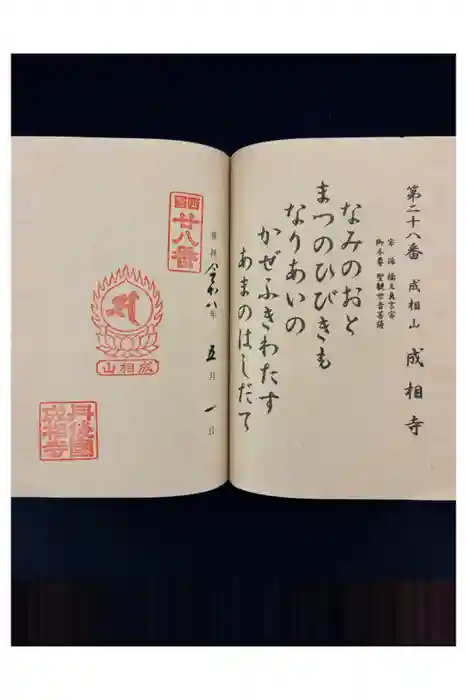 第二十八番 成相山 成相寺
宗派 橋立真言宗
御本尊 聖観世音菩薩
なみのおと
まつのひびきも
なりあいの
かぜふきわたす
あまのはしだて
奉拝 令和八年 五月 一日
西国
廿八番
成相山
丹後國
成相寺